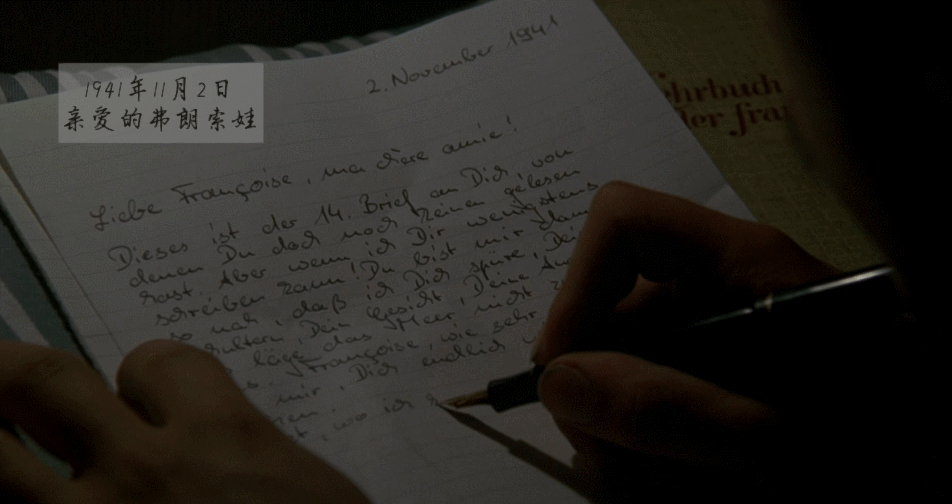 1941年11月2日
亲爱的弗朗索娃
2. November 1941
Liebe Françoise, ma chère amie!
Dieses ist der 14. Brief an Dich, von
denen Du doch noch keinen gelesen
hast. Aber wenn ich Dir wenigstens
schreiben kann! Du bist mir dann
so nah, daß ich Dich spüre, Dein
Dein Gesicht, Deine
läge das Meer nicht
Françoise, wie sehr
mir, Dich endlich
wo ich
der